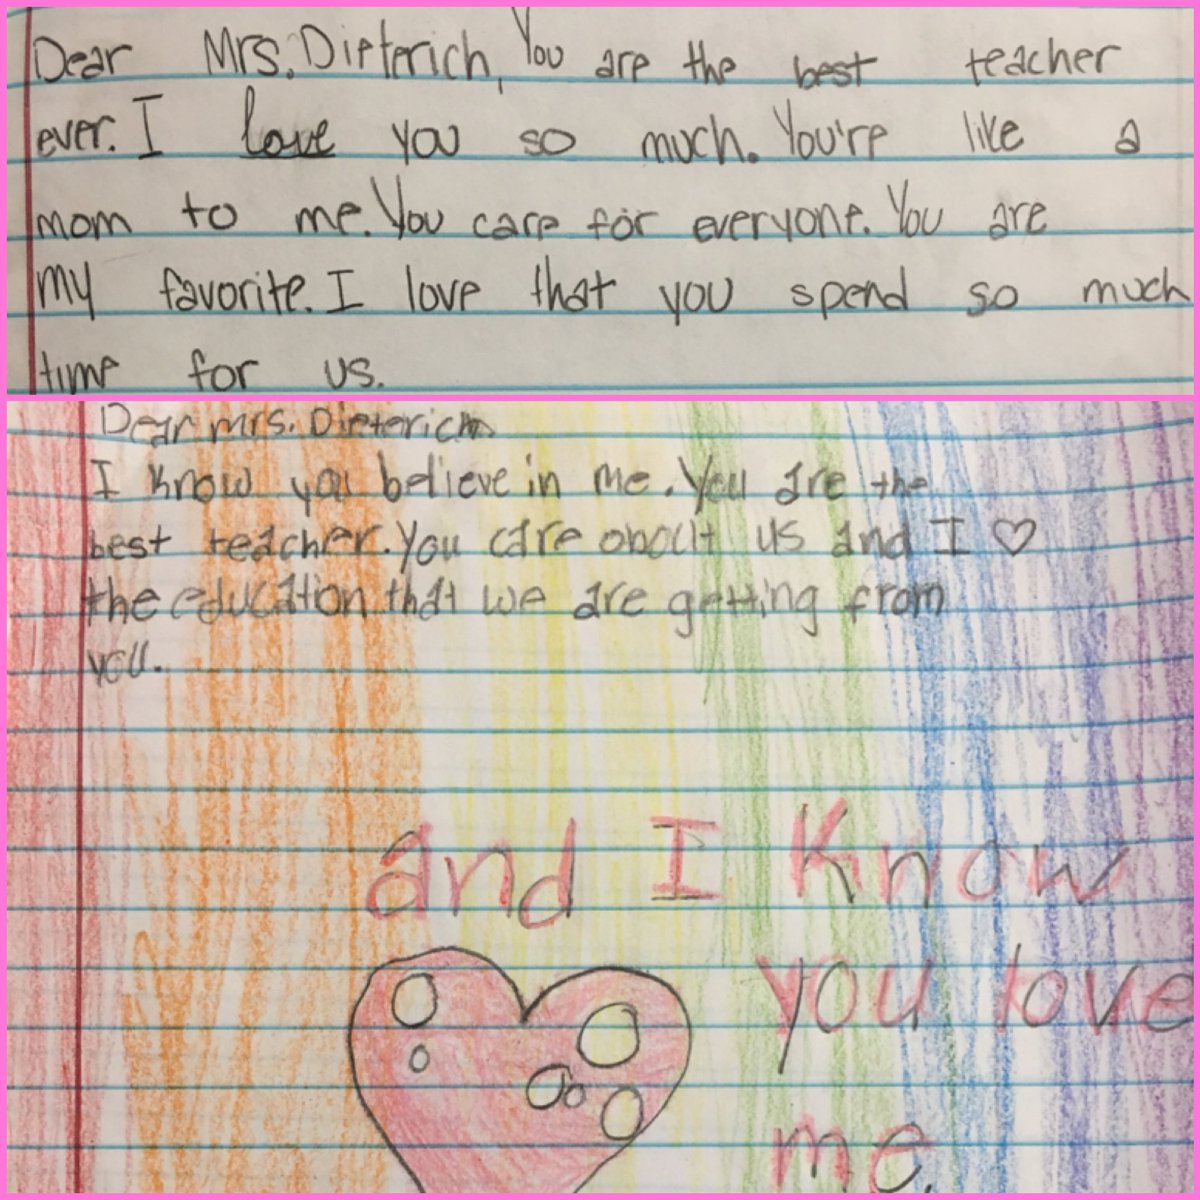 Dear Mrs. Dieterich, You are the best teacher
ever. I love you so much. You're like a
mom to me. You care for everyone. You are
my favorite. I love that you spend so much
time for us.
Dear mrs. Dieterich
I know you believe in me. You are the
best teacher. You care about us and I ♡
the education that we are getting from
you.
and I know
you love
me.